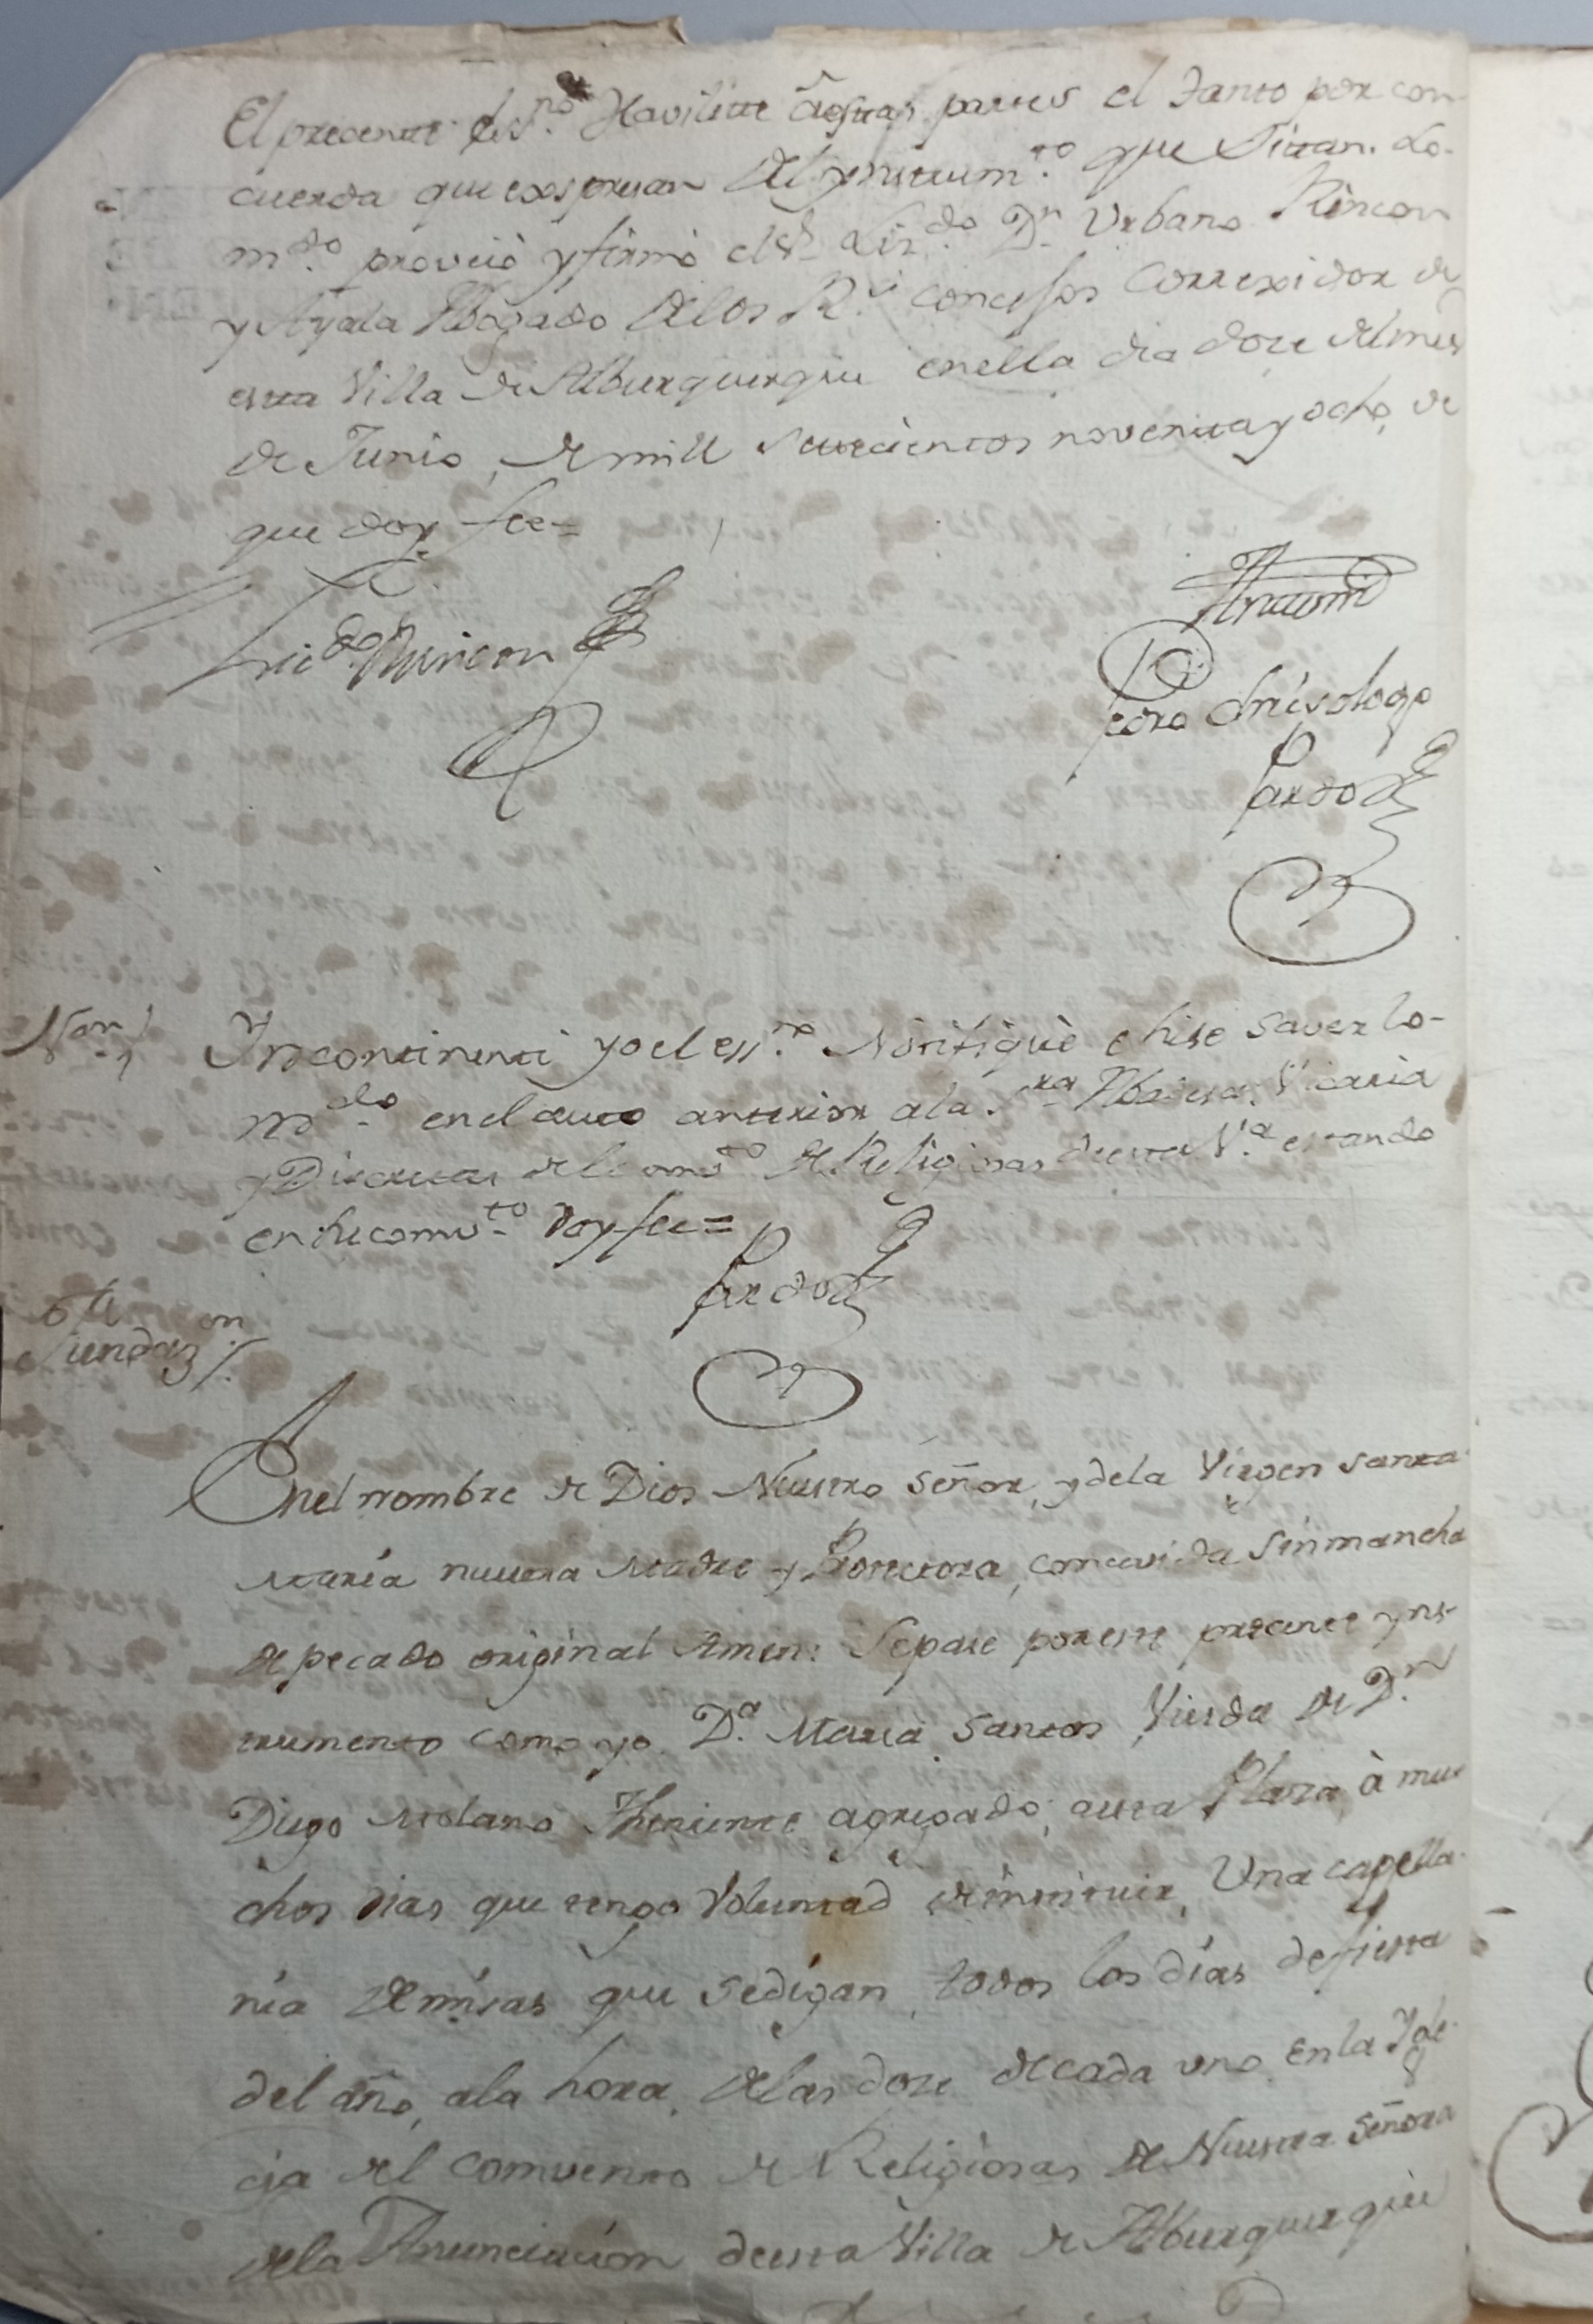 El precente es.no Havilite à estas partes el tanto por con-
cuerda que expresan del ynstrum.to que Sitan. Lo-
m.do proveiò y firmò el S.r Liz.do D.n Urbano Rincon
y Ayala Abogado de los R.s concejos Correxidor de
esta Villa de Alburquerque en ella dia doze del mes
de Junio, de mill setecientos noventa y ocho, de
que doy fee=
Lic.do Rincon
Antemi
Pedro Chrisologo
Pardo
Non.
Yncontinenti yo el ess.no Notifiquè e hise saver lo-
m.do en el auto anterior a la S.ra Abadesa, Vicaria
y Discretas del comb.to de Religiosas de esta V.a estando
en dho comv.to doy fee=
Pardo
Fundaz.on
En el nombre de Dios Nuestro Señor, y de la Virgen santa
Marìa nuestra Madre y Protectora, concevida sin mancha
de pecado original Amen: Sepase por este precente yns-
trumento como yo D.a Maria Santos, Viuda de D.n
Diego Molano Theniente agregado, a esta Plaza, à mu-
chos dias que tengo Voluntad de instituir, Una capella-
nìa de misas que se digan, todos los dìas de fiesta
del año, a la hora, de las doze de cada uno, en la Ygle-
cia del comvento de Religiosas de Nuestra Señora
de la Anunciacion de esta Villa de Alburquerque